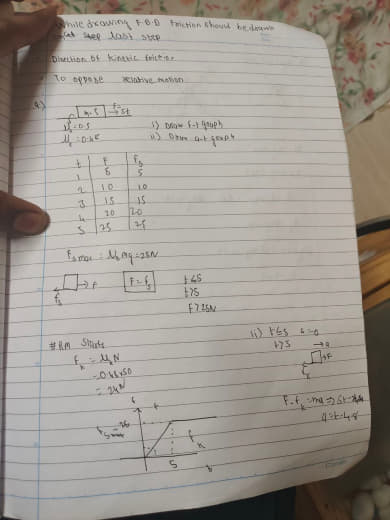 While drawing F.B.D friction should be drawn
at last step
Direction of kinetic friction
To oppose relative motion
m=5 F=5t
μs=0.5 i) Draw f-t graph
ii) Draw a-t graph
t F fs
1 5 5
2 10 10
3 15 15
4 20 20
5 25 25
fs max = μs mg = 25N
fs F F=fs t≤5
t>5
F>25N
#RM Starts
fk = μk N
= 0.48x50
= 24N
ii) t≤5 a=0
t>5 →a
F
fk
F-fk = ma => 5t-24
a=t-4.8
f
fs max = 25
fk
5 t